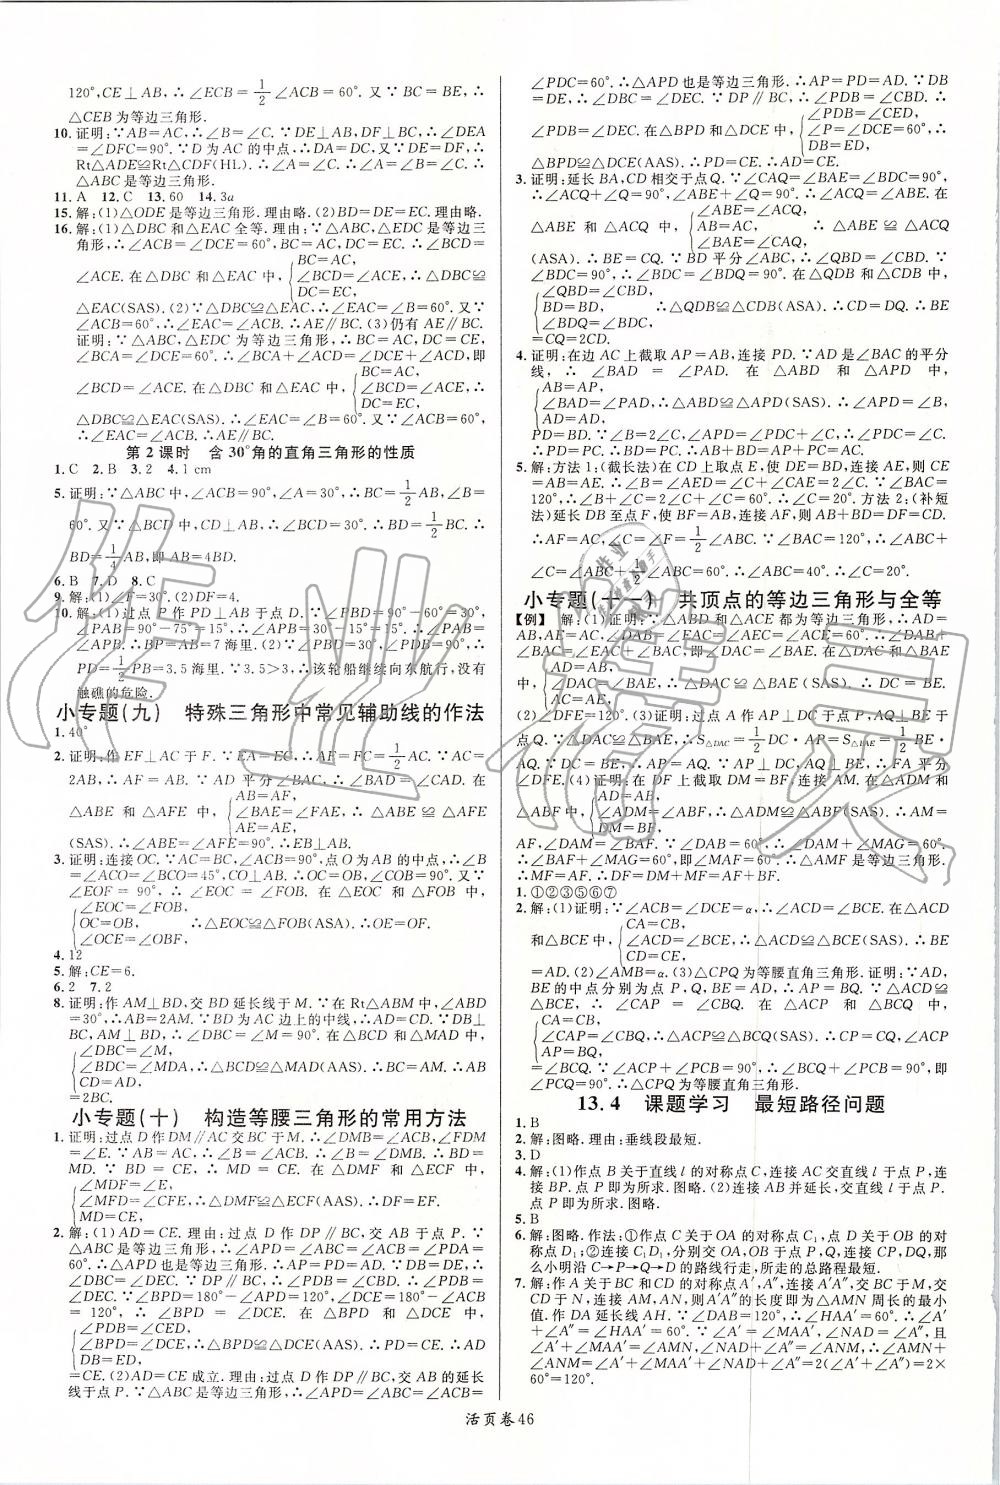 120°,CE⊥AB,∴∠ECB=1/2∠ACB=60°.又∵BC=BE,∴
△CEB为等边三角形.
10.证明:∵AB=AC,∴∠B=∠C.∵DE⊥AB,DF⊥BC,∴∠DEA
=∠DFC=90°.∵D为AC的中点,∴DA=DC,又∵DE=DF,∴
Rt△ADE≌Rt△CDF(HL).∴∠A=∠C.∴∠A=∠B=∠C.∴
△ABC是等边三角形.
11.A 12.C 13.60 14.3a
15.解:(1)△ODE是等边三角形.理由略.(2)BD=DE=EC.理由略.
16.解:(1)△DBC和△EAC全等.理由:∵△ABC,△EDC是等边三
角形,∴∠ACB=∠DCE=60°,AC=BC,DC=EC.∴∠BCD=
∠ACE.在△DBC和△EAC中,{BC=AC,
∠BCD=∠ACE,∴△DBC≌
DC=EC,
△EAC(SAS).(2)∵△DBC≌△EAC,∴∠EAC=∠B=60°.又∵
∠ACB=60°,∴∠EAC=∠ACB.∴AE∥BC.(3)仍有AE∥BC.
证明:∵△ABC,△EDC为等边三角形,∴BC=AC,DC=CE,
∠BCA=∠DCE=60°.∴∠BCA+∠ACD=∠DCE+∠ACD,即
∠BCD=∠ACE.在△DBC和△EAC中,{BC=AC,
∠BCD=∠ACE,∴
DC=EC,
△DBC≌△EAC(SAS).∴∠EAC=∠B=60°.又∵∠ACB=60°,
∴∠EAC=∠ACB.∴AE∥BC.
第2课时 含30°角的直角三角形的性质
1.C 2.B 3.2 4.1 cm
5.证明:∵△ABC中,∠ACB=90°,∠A=30°,∴BC=1/2AB,∠B=
60°.又∵△BCD中,CD⊥AB,∴∠BCD=30°.∴BD=1/2BC.∴
BD=1/4AB,即AB=4BD.
6.B 7.D 8.C
9.解:(1)∠F=30°.(2)DF=4.
10.解:(1)过点P作PD⊥AB于点D.∵∠PBD=90°-60°=30°,
∠PAB=90°-75°=15°,∴∠PAB=∠APB=15°.∴
BP=AB=7海里.(2)∵∠PBD=30°,∴
PD=1/2PB=3.5海里.∵3.5>3,∴该轮船继续向东航行,没有
触礁的危险.
小专题(九) 特殊三角形中常见辅助线的作法
1.40°
2.证明:作EF⊥AC于F.∵EA=EC,∴AF=FC=1/2AC.∵AC=
2AB,∴AF=AB.∵AD平分∠BAC,∴∠BAD=∠CAD.在
△ABE和△AFE中,{AB=AF,
∠BAE=∠FAE,∴△ABE≌△AFE
AE=AE,
(SAS).∴∠ABE=∠AFE=90°.∴EB⊥AB.
3.证明:连接OC.∵AC=BC,∠ACB=90°,点O为AB的中点,∴∠B
=∠A=∠OCA=∠OCB=45°,CO⊥AB.∴OC=OB,∠COB=90°.又∵
∠EOF=90°,∴∠EOC=∠FOB.在△EOC和△FOB中,
{∠EOC=∠FOB,
OC=OB, ∴△EOC≌△FOB(ASA).∴OE=OF.
∠OCE=∠OBF,
4.12
5.解:CE=6.
6.2 7.2
8.证明:作AM⊥BD,交BD延长线于点M.∵在Rt△ABM中,∠ABD
=30°,∴AB=2AM.∵BD为AC边上的中线,∴AD=CD.∵DB⊥
BC,AM⊥BD,∴∠DBC=∠M=90°.在△BCD和△MAD中,
{∠DBC=∠M,
∠BDC=∠MDA,∴△BCD≌△MAD(AAS).∴BC=AM.∴AB
CD=AD,
=2BC.
小专题(十) 构造等腰三角形的常用方法
1.证明:过点D作DM∥AC交BC于M.∴∠DMB=∠ACB,∠FDM
=∠E.∵AB=AC,∴∠B=∠ACB.∴∠B=∠DMB.∴BD=
MD.∵BD=CE,∴MD=CE.在△DMF和△ECF中,
{∠MDF=∠E,
∠MFD=∠CFE,∴△DMF≌△ECF(AAS).∴DF=EF.
MD=CE,
2.解:(1)AD=CE.理由:过点D作DP∥BC,交AB于点P.∵
△ABC是等边三角形,∴∠APD=∠ABC=∠ACB=∠PDA=
60°.∴△APD也是等边三角形.∴AP=PD=AD.∵DB=DE,∴
∠DBC=∠DEC.∵DP∥BC,∴∠PDB=∠CBD.∴∠PDB=
∠CED.∵∠BPD=180°-∠APD=120°,∠DCE=180°-∠ACB
=120°,∴∠BPD=∠DCE.在△BPD和△DCE中,
{∠PDB=∠CED,
∠BPD=∠DCE,∴△BPD≌△DCE(AAS).∴PD=CE.∴AD
DB=ED,
=CE.(2)AD=CE.理由:过点D作DP∥BC,交AB的延长
线于点P.∵△ABC是等边三角形,∴∠APD=∠ABC=∠ACB=
∠PDC=60°.∴△APD也是等边三角形.∴AP=PD=AD.∵DB
=DE,∴∠DBC=∠DEC.∵DP∥BC,∴∠PDB=∠CBD.∴
∠PDB=∠DEC.在△BPD和△DCE中,{∠PDB=∠CED,
∠P=∠DCE=60°,∴
DB=ED,
△BPD≌△DCE(AAS).∴PD=CE.∴AD=CE.
3.证明:延长BA,CD相交于点Q.∵∠CAQ=∠BAC=∠BDC=90°,
∴∠ACQ+∠Q=90°,∠ABE+∠Q=90°.∴∠ACQ=∠ABE.在
△ABE和△ACQ中,{∠ABE=∠ACQ,
AB=AC, ∴△ABE≌△ACQ
∠BAE=∠CAQ,
(ASA).∴BE=CQ.∵BD平分∠ABC,∴∠QBD=∠CBD.∵
∠BDC=90°,∴∠BDQ=90°.在△QDB和△CDB中,
{∠QBD=∠CBD,
BD=BD, ∴△QDB≌△CDB(ASA).∴CD=DQ.∴BE
∠BDQ=∠BDC=90°,
=CQ=2CD.
4.证明:在边AC上截取AP=AB,连接PD.∵AD是∠BAC的平分
线,∴∠BAD=∠PAD.在△ABD和△APD中,
{AB=AP,
∠BAD=∠PAD,∴△ABD≌△APD(SAS).∴∠APD=∠B,
AD=AD,
PD=BD.∵∠B=2∠C,∴∠APD=2∠C.∴∠PDC=∠C.∴
PD=PC.∴AB+BD=AC.
5.解:方法1:(截长法)在CD上取点E,使DE=BD,连接AE,则CE
=AB=AE.∴∠B=∠AED=∠C+∠CAE=2∠C.∵∠BAC=
120°,∴∠B+∠C=2∠C+∠C=60°.∴∠C=20°.方法2:(补短
法)延长DB至点F,使BF=AB,连接AF,则AB+BD=DF=CD.
∴AF=AC,∠C=∠F=1/2∠ABC.∵∠BAC=120°,∴∠ABC+
∠C=∠ABC+1/2∠ABC=60°.∴∠ABC=40°.∴∠C=20°.
小专题(十一) 共顶点的等边三角形与全等
【例】 解:(1)证明:∵△ABD和△ACE都为等边三角形,∴AD=
AB,AE=AC,∠DAB=∠EAC=∠AEC=60°.∴∠DAB+
∠BAC=∠EAC+∠BAC,即∠DAC=∠BAE.在△DAC和△BAE
中,{AD=AB,
∠DAC=∠BAE,∴△DAC≌△BAE(SAS).∴DC=BE.
AC=AE,
(2)∠DFE=120°.(3)证明:过点A作AP⊥DC于点P,AQ⊥BE于
点Q.∵△DAC≌△BAE,∴S△DAC=1/2DC·AP=S△BAE=1/2BE·
AQ.∵DC=BE,∴AP=AQ.∵AP⊥DC,AQ⊥BE,∴FA平分
∠DFE.(4)证明:在DF上截取DM=BF,连接AM.在△ADM和
△ABF中,{AD=AB,
∠ADM=∠ABF,∴△ADM≌△ABF(SAS).∴AM=
DM=BF,
AF,∠DAM=∠BAF.∵∠DAB=60°,∴∠DAM+∠MAG=60°.
∴∠BAF+∠MAG=60°,即∠MAF=60°.∴△AMF是等边三角形.
∴MF=AF.∴DF=DM+MF=BF+AF.
1.①②③⑤⑥⑦
2.解:(1)证明:∵∠ACB=∠DCE=α,∴∠ACD=∠BCE.在△ACD
和△BCE中,{CA=CB,
∠ACD=∠BCE,∴△ACD≌△BCE(SAS).∴BE
CD=CE,
=AD.(2)∠AMB=α.(3)△CPQ为等腰直角三角形.证明:∵AD,
BE的中点分别为点P,Q,BE=AD,∴AP=BQ.∵△ACD≌
△BCE,∴∠CAP=∠CBQ.在△ACP和△BCQ中,
{CA=CB,
∠CAP=∠CBQ,∴△ACP≌△BCQ(SAS).∴CP=CQ,∠ACP
AP=BQ,
=∠BCQ.∵∠ACP+∠PCB=90°,∴∠BCQ+∠PCB=90°,即
∠PCQ=90°.∴△CPQ为等腰直角三角形.
13.4 课题学习 最短路径问题
1.B
2.解:图略.理由:垂线段最短.
3.D
4.解:(1)作点B关于直线l的对称点C,连接AC交直线l于点P,连
接BP.点P即为所求.图略.(2)连接AB并延长,交直线l于点P.
点P即为所求.图略.
5.B
6.解:图略.作法:①作点C关于OA的对称点C₁,点D关于OB的对
称点D₁;②连接C₁D₁,分别交OA,OB于点P,Q,连接CP,DQ,那
么小明沿C→P→Q→D的路线行走,所走的总路程最短.
7.解:作A关于BC和CD的对称点A′,A″,连接A′A″,交BC于M,交
CD于N,连接AM,AN,则A′A″的长度即为△AMN周长的最小
值.作DA延长线AH.∵∠DAB=120°,∴∠HAA′=60°.∴∠A′
+∠A″=∠HAA′=60°.∵∠A′=∠MAA′,∠NAD=∠A″,且
∠A′+∠MAA′=∠AMN,∠NAD+∠A″=∠ANM,∴∠AMN+
∠ANM=∠A′+∠MAA′+∠NAD+∠A″=2(∠A′+∠A″)=2×
60°=120°.
活页卷46
作业精灵